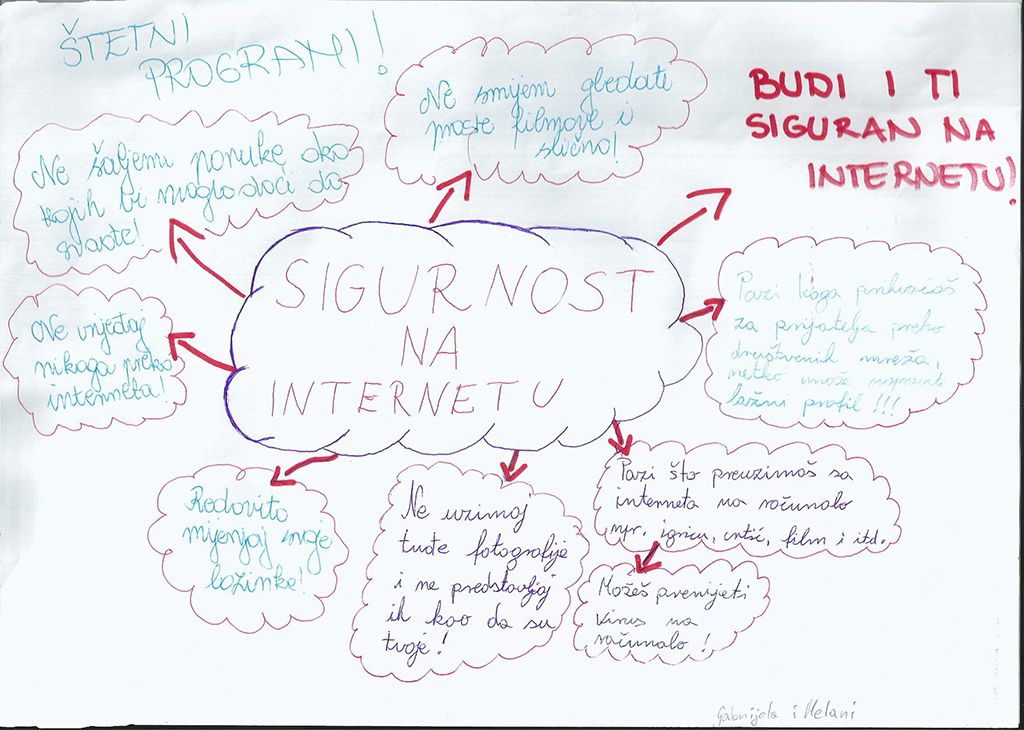 ŠTETNI
PROGRAMI!
Ne smijem gledati
proste filmove i
slično!
BUDI I TI
SIGURAN NA
INTERNETU!
Ne šaljem poruke oko
kojih bi moglo doći do
svađe!
SIGURNOST
NA
INTERNETU
Pazi koga prihvaćaš
za prijatelja preko
društvenih mreža,
netko može napraviti
lažni profil !!!
Ne vrijeđaj
nikoga preko
interneta!
Redovito
mijenjaj svoje
lozinke!
Ne uzimaj
tuđe fotografije
i ne predstavljaj
ih kao da su
tvoje!
Pazi što preuzimaš sa
interneta na računalo
npr. igricu, crtić, film i itd.
Možeš prenijeti
virus na
računalo!
Gabrijela i Melani